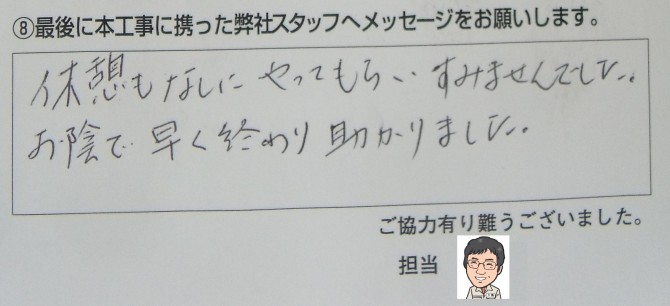 ⑧最後に本工事に携った弊社スタッフへメッセージをお願いします。
休憩もなしにやってもらいすみませんでした。
お陰で早く終わり助かりました。
ご協力有り難うございました。
担当